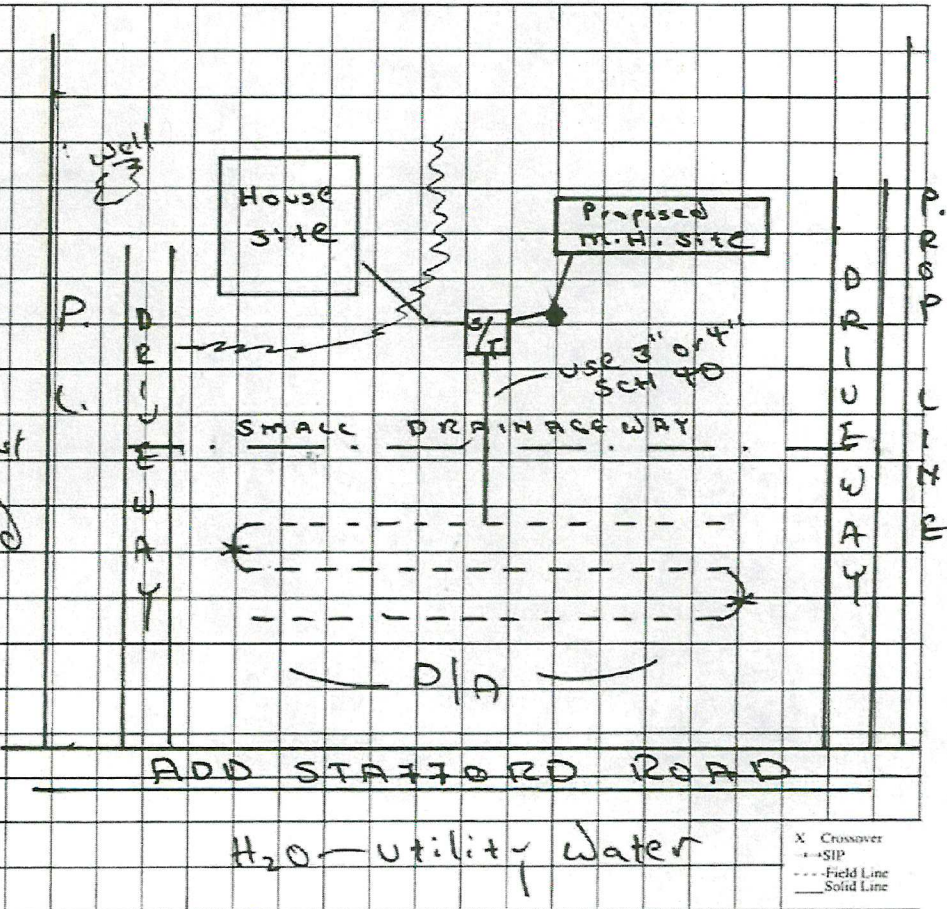 well
House
Site
Proposed
M.H. Site
S/T
use 3" or 4"
SCH 40
P.L.
DRIVEWAY
SMALL DRAINAGEWAY
DRIVEWAY
PROP LINE
st
D/D
ADD STAFFORD ROAD
H₂O — utility water
X Crossover
SIP
Field Line
Solid Line